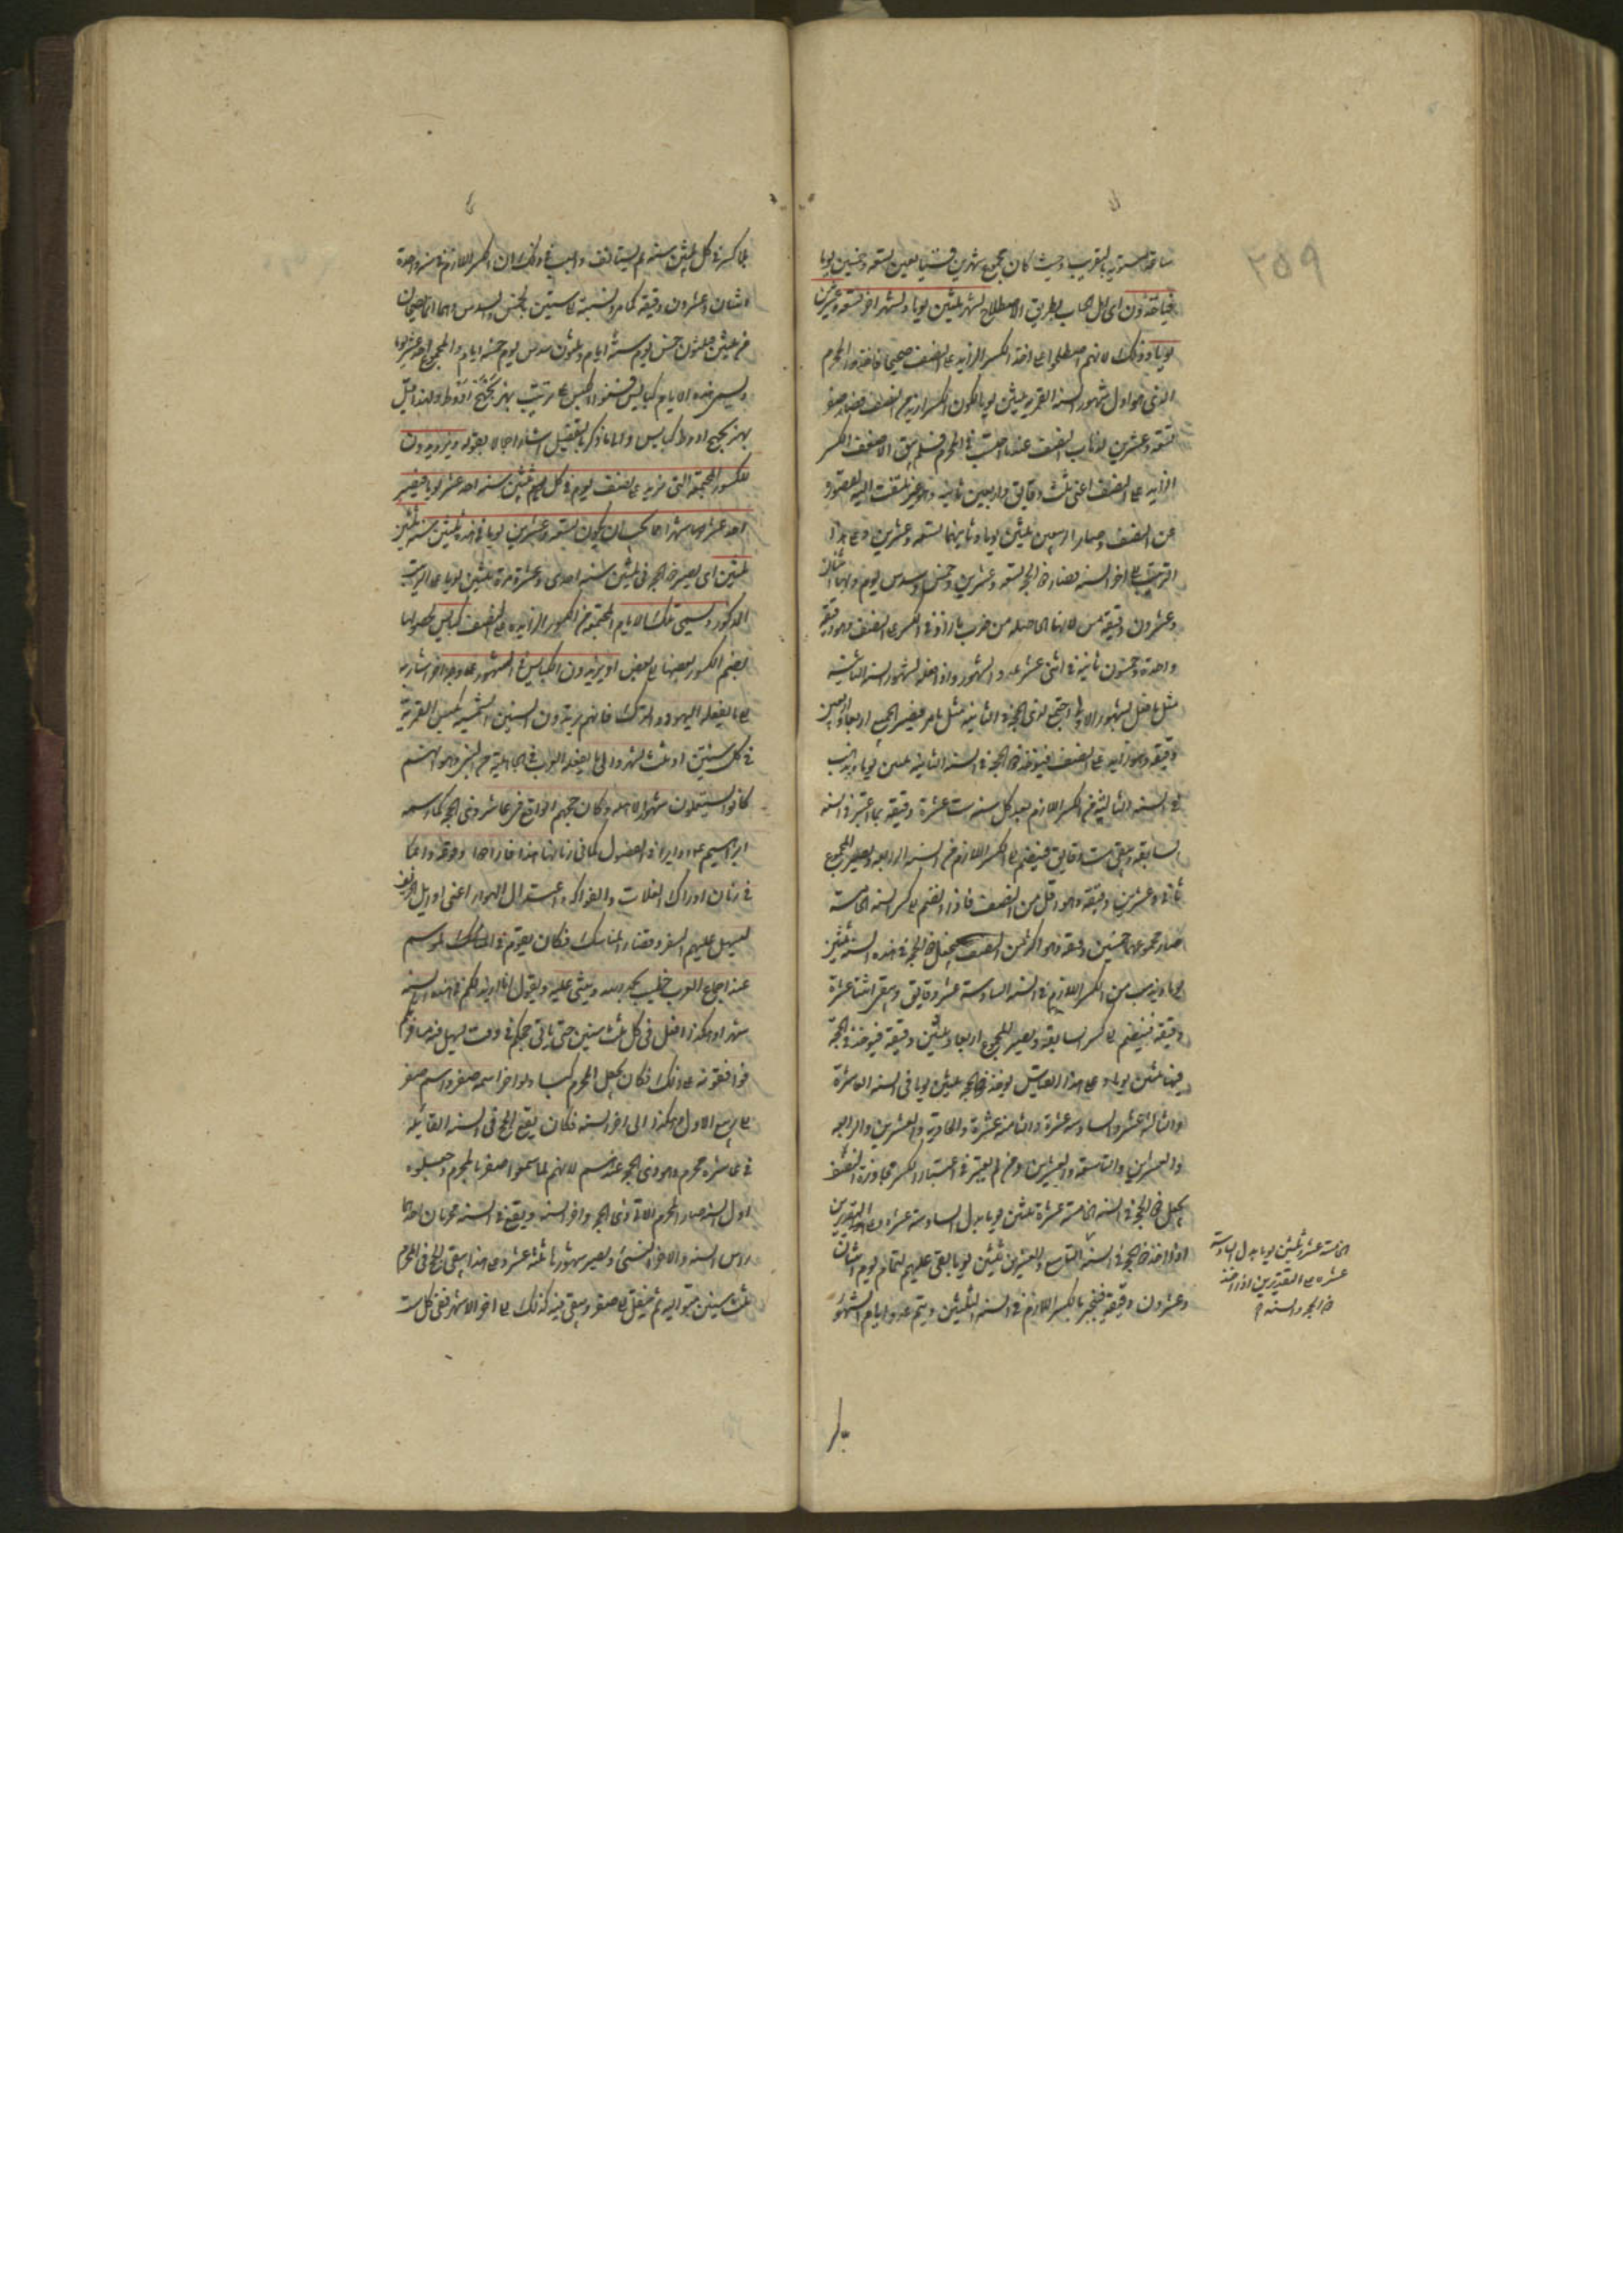 ٢٥٩
ساعة مستوية بالتقريب وحيث كان مجموع شهرين تسعة وخمسين يوما
فياخذون اى اهل الحساب بطريق الاصطلاح لشهر ثلثين يوما ولشهر اخر تسعة وعشرين
يوما وذلك لانهم اصطلحوا على اخذ الكسر الزايد على النصف صحيحا فاخذوا المحرم
الذى هو اول شهور السنة القمرية ثلثين يوما لكون الكسر ازيد من النصف فصار صفر
تسعة وعشرين لذهاب النصف عنه بما احتسب في المحرم فلم يبق الا ضعف الكسر
الزايد على النصف اعنى ثلث دقايق واربعين ثانية وهو غير ملتفت اليه لقصوره
عن النصف وصار الربيعين ثلثين يوما وثانيهما تسعة وعشرين وعلى هذا
الترتيب الى اخر السنة فصار ذو الحجة تسعة وعشرين وخمس وسدس يوم وهما اثنان
وعشرون دقيقة من لانها الحاصلة من ضرب ما زاد في الكسر على النصف وهو دقيقة
واحدة وخمسون ثانية في اثنى عشر عدد الشهور واذا فعل بشهور السنة الثانية
مثل ما فعل بشهور الاولى اجتمع لذى الحجة الثانية مثل ما مر فيصير الجميع اربعا واربعين
دقيقة وهو زايد على النصف فيؤخذ ذو الحجة في السنة الثانية ثلثين يوما ويذهب
في السنة الثالثة من الكسر اللازم بعد كل سنة ست عشرة دقيقة بما اعتبر في السنة
السابقة ويبقى ست دقايق فينضم الى الكسر اللازم من السنة الرابعة ويصير المجموع
ثمانى وعشرين دقيقة وهو اقل من النصف فاذا انضم الى كسر السنة الخامسة
صار مجموعهما خمسين دقيقة وهو اكثر من النصف فيجعل ذو الحجة في هذه السنة ثلثين
يوما ويذهب من الكسر اللازم في السنة السادسة عشر دقايق ويبقى اثنتا عشرة
دقيقة فينضم الى كسر السابعة ويصير المجموع اربعا وثلثين دقيقة فيؤخذ ذو الحجة
فيها ثلثين يوما وعلى هذا القياس يؤخذ ذو الحجة ثلثين يوما في السنة العاشرة
والثالثة عشر والسادسة عشرة والثامنة عشرة والحادية والعشرين والرابعة
والعشرين والتاسعة والعشرين ومن لم يعتبر في اعتبار الكسر مجاوزة النصف
يجعل ذو الحجة في السنة الخامسة عشرة ثلثين يوما بدل السادسة عشرة وعلى التقديرين
اذا اخذ ذو الحجة في السنة التاسع والعشرين ثلثين يوما بقى عليهم لتمام يوم اثنان
وعشرون دقيقة فينجبر بالكسر اللازم في السنة الثلثين ويتم عدد ايام الشهور
الخامسة عشر ثلثين يوما بدل السادسة
عشرة على التقديرين اذا اخذ
ذو الحجة والسنة
بلا كسر في كل ثلثين سنة ثم يستانف والسبب في ذلك ان الكسر اللازم في سنة واحدة
اثنان وعشرون دقيقة كما مر ونسبته الى ستين بالخمس والسدس وهما انما يصحان
من ثلثين فثلثون خمس يوم ستة ايام وثلثون سدس يوم خمسة ايام والمجموع احد عشر يوما
ويسمى هذه الايام كبايس فسنوا الكبس على ترتيب بهز يجيح ادوط ولهذا قيل
بهز يجيح ادوط كبايس والى ما ذكرنا بالتفصيل اشار اجمالا بقوله ويزيدون
لكسور المجتمعة التي مزيد على نصف يوم في كل ثلثين سنة احد عشر يوما فيصير
احد عشر شهرا مما يجب ان يكون تسعة وعشرين يوما في هذه ثلثين سنة ثلثين
ثلثين اى يصير ذو الحجة في ثلثين سنة احدى وعشرة مرة ثلثين يوما على الترتيب
المذكور ويسمى تلك الايام المجتمعة من الكسور الزايدة على النصف كبايس لحصولها
بضم الكسور بعضها الى بعض او يزيدون الكبايس في الشهور على وجه اخر اشار به
الى ما يفعله اليهود والترك فانهم يزيدون السنين الشمسية على السنين القمرية
في كل سنتين او ثلث شهرا والى ما يفعله العرب في الجاهلية من النسئ وهو انهم
كانوا يستعملون شهور الاهلة وكان حجهم الواقع في عاشر ذى الحجة كما رسمه
ابراهيم عم دايرا في الفصول كما في زماننا هذا فارادوا وقوعه دائما
في زمان ادراك الغلات والفواكه واعتدال الهواء اعنى اوايل الخريف
ليسهل عليهم السفر وقضاء المناسك فكان يقوم في المناسك الموسم
عند اجتماع العرب خطيب يحمد الله ويثنى عليه ويقول انا ازيد لكم في هذه السنة
شهرا وهكذا افعل في كل ثلث سنين حتى ياتى حجكم في وقت يسهل فيه مسافرتكم
فوافقونه على ذلك فكان يجعل المحرم كبسا ويؤخر اسمه صفر واسم صفر
الى ربيع الاول وهكذا الى اخر السنة فكان يقع الحج في السنة القابلة
في عاشر محرم وهو ذى الحجة عندهم لانهم لما سموا صفر بالمحرم وجعلوه
اول السنة صار المحرم الاتى ذى الحجة واخر السنة ويقع في السنة محرمان احدهما
راس السنة والاخر النسئ ويصير شهورها ثلثة عشر وعلى هذا يبقى الحج في المحرم
ثلث سنين متوالية ثم ينتقل الى صفر ويبقى فيه كذلك الى اخر الاشهر ففى كل ست